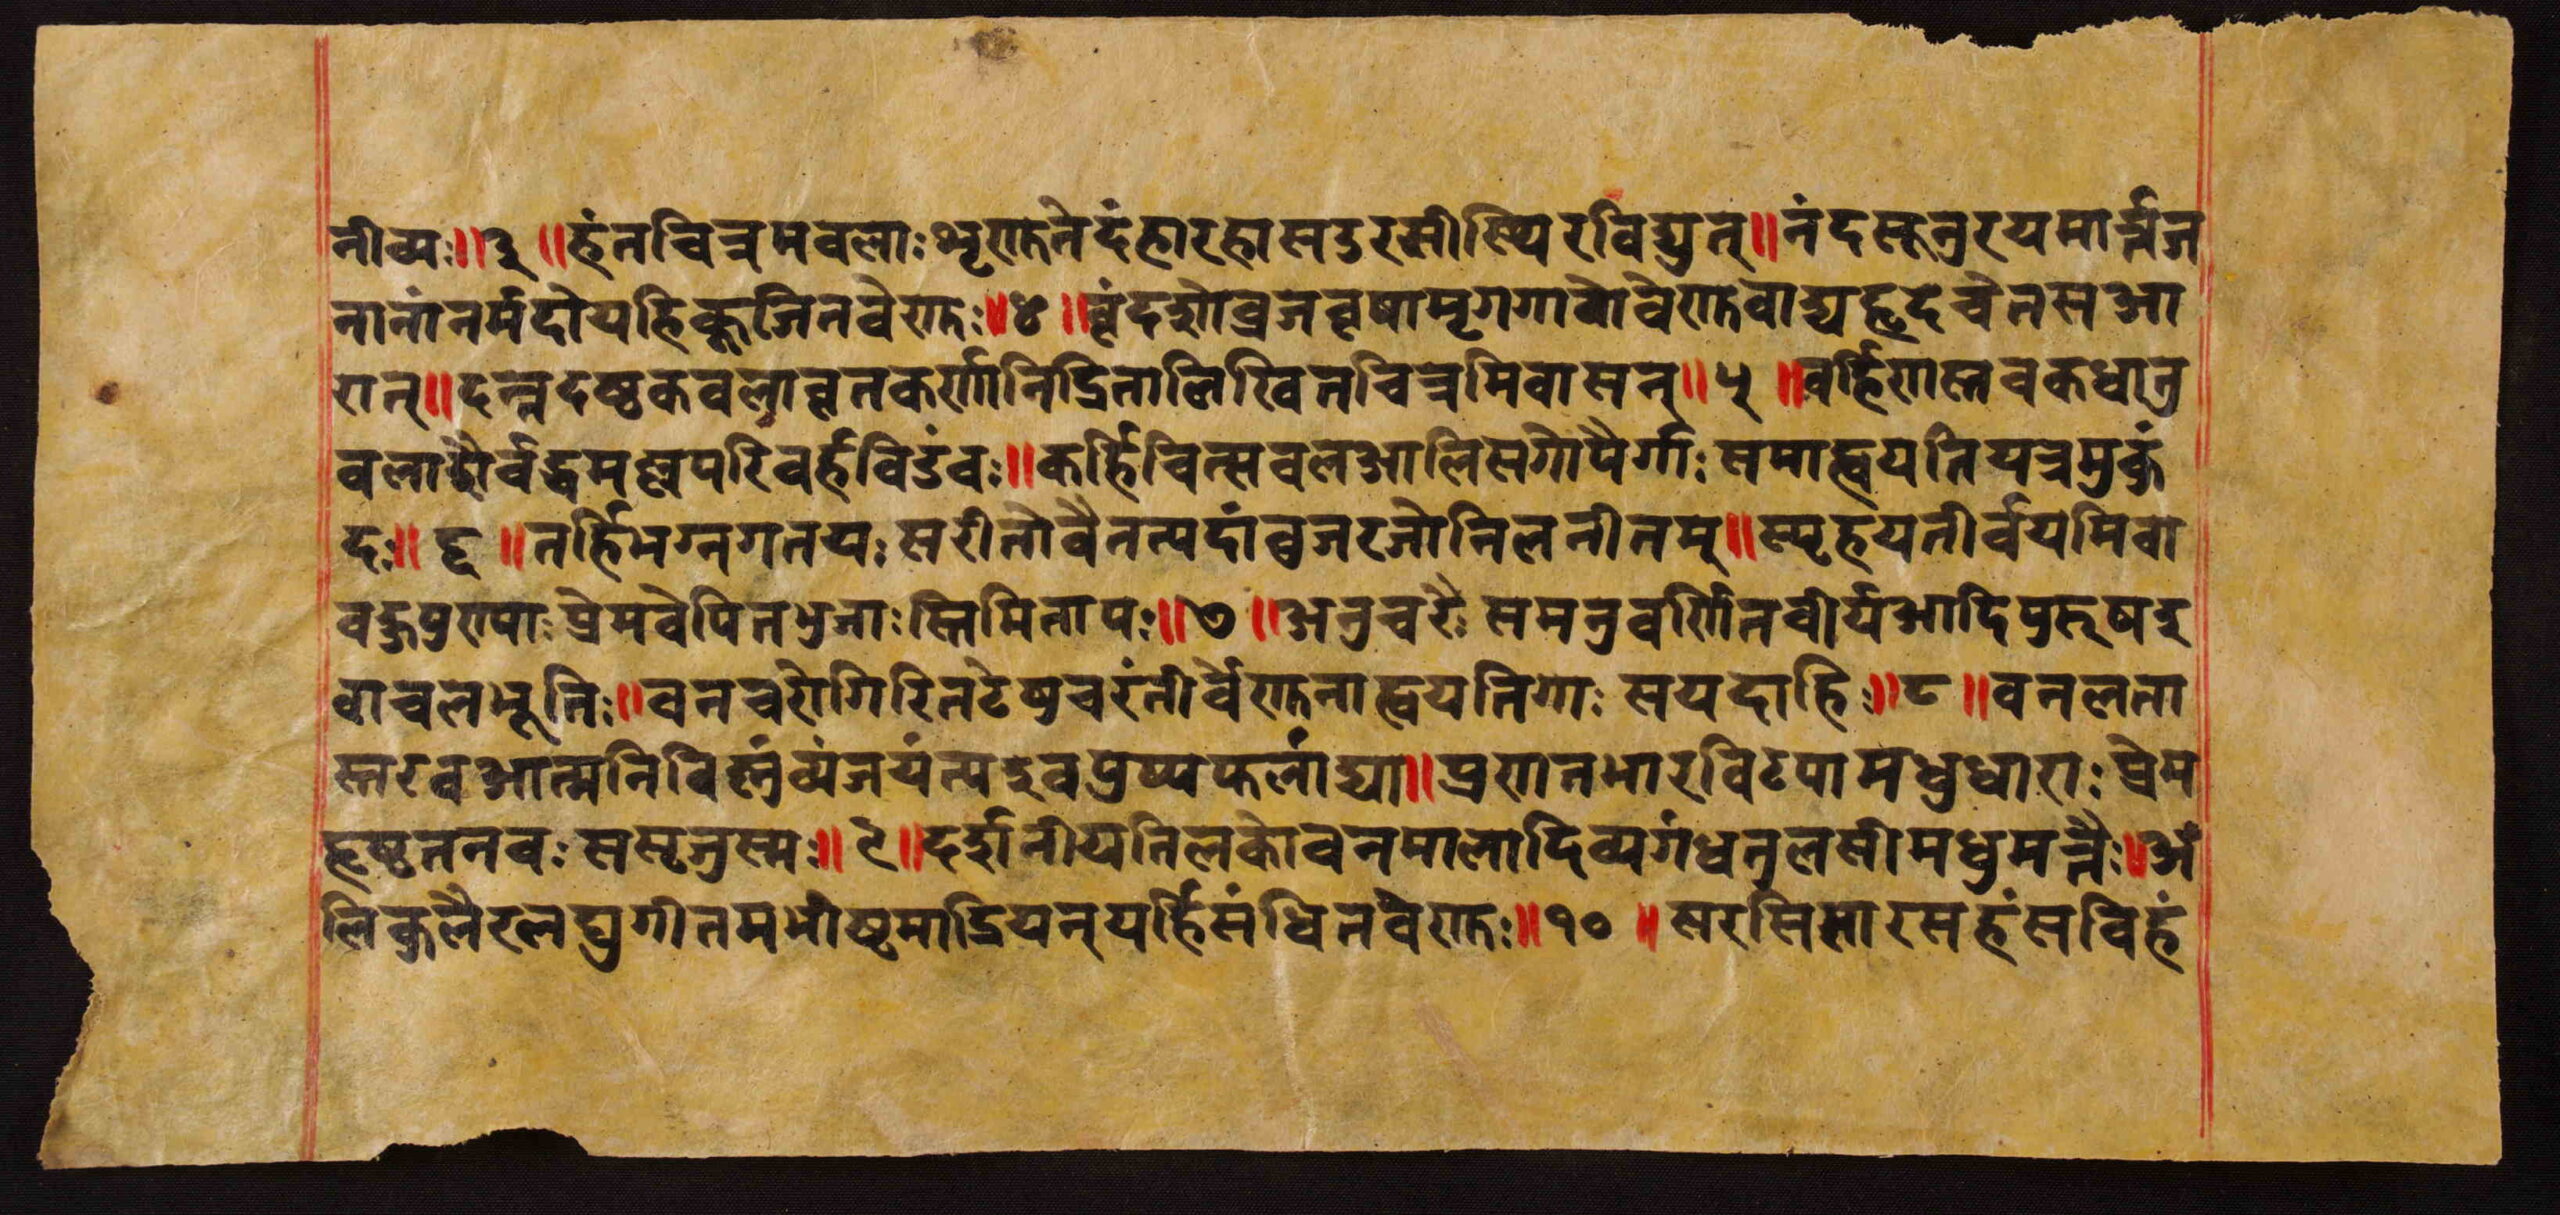 नीव्यः॥३॥हंतचित्रमवलाःशृणुतेदंहारहासउरसीस्थिरविद्युत्॥नंदसूनुरयमार्त्तज
नानांनर्मदोयर्हिकूजितवेणुः॥४॥वृंदशोव्रजवृषामृगगावोवेणुवाद्यहृदचेतसआ
रात्॥दन्तदष्टकवलाधृतकर्णानिद्रितालिखितचित्रमिवासन्॥५॥वर्हिणस्तवकधातु
पलाशैर्वद्धमल्लपरिवर्हविडंवः॥कर्हिचित्सवलआलिसगोपैर्गाःसमाह्वयतियत्रमुकुं
दः॥६॥तर्हिभग्नगतयःसरीतोवैतत्पदांवुजरजोनिलनीतम्॥स्पृहयतीर्वयमिवा
वहुपुण्याःप्रेमवेपितभुजाःस्तिमितापः॥७॥अनुचरैःसमनुवर्णितवीर्यआदिपुरूषइ
वाचलभूतिः॥वनचरोगिरितटेषुचरंतीर्वेणुनाह्वयतिगाःसयदाहिः॥८॥वनलता
स्तरवआत्मनिविष्णुंव्यंजयंत्यइवपुष्पफलाढ्या॥प्रणतभारविटपामधुधाराःप्रेम
हृष्टतनवःससृजुस्मः॥९॥दर्शनीयतिलकोवनमालादिव्यगंधतुलसीमधुमत्तैः॥अं
लिकुलैरलघुगीतमभीष्टमाद्रियन्यर्हिसंधितवेणुः॥१०॥सरसिसारसहंसविहं